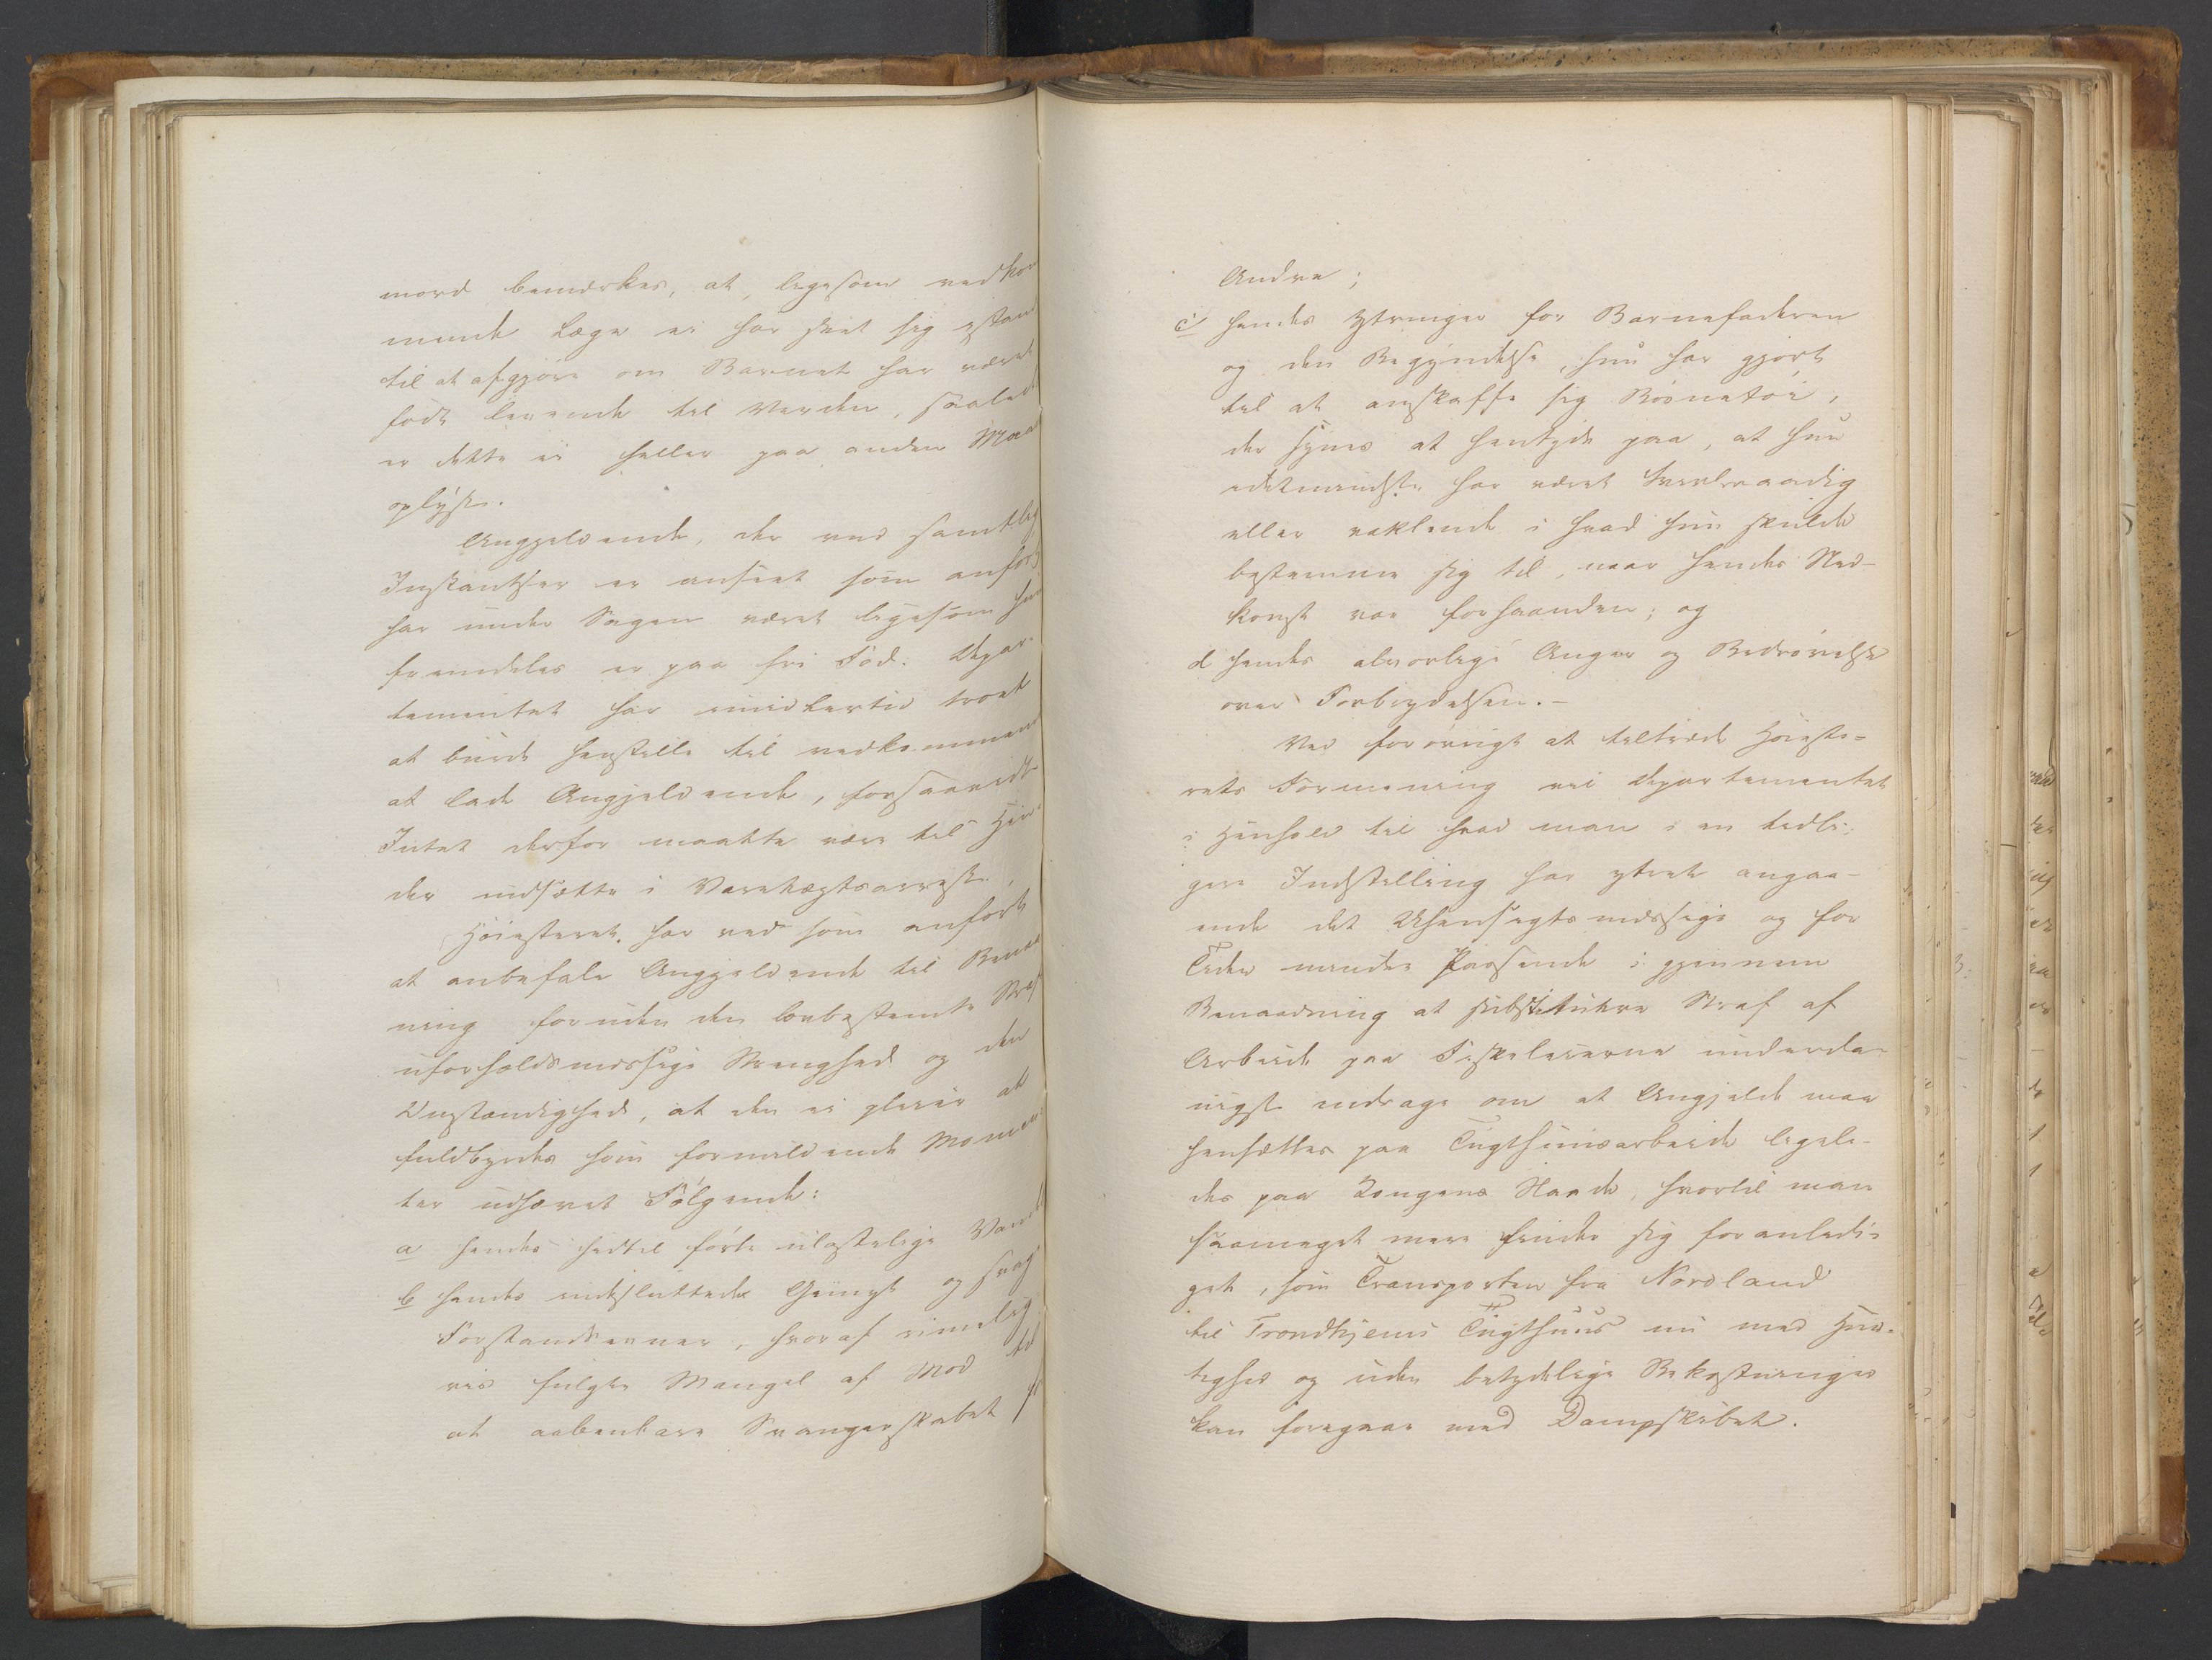 mord bemærkes, at, ligesom vedkom
mende Læge ei har seet sig istand
til at afgjøre om Barnet har været
født levende til Verden, saaled
er dette ei heller paa anden Maa
oplyst.
Angjeldende, der ved samtlig
Instantser er anseet som anført
har under Sagen været ligesom hun
fremdeles er paa fri Fod. Depar-
tementet har imidlertid troet
at burde henstille til vedkommend
at lade Angjeldende, forsaavidt
Intet derfor maatte være til Hin-
der indsætte i Varetægtsarrest.
Høiesteret har ved som anført
at anbefale Angjeldende til Benaa
ning foruden den lovbestemte Straf
uforholdsmæssige Strenghed og den
Omstændighed, at den ei pleier at
fuldbyrdes som formildende Momen-
ter udhævet Følgende:
a hendes hidtil førte ulastelige Vand
b hendes indsluttede Gemyt og svag
Forstandsevner, hvoraf rimelig
vis fulgte Mangel af Mod til
at aabenbare Svangerskabet f
Andre;
c hendes Yttringer for Barnefaderen
og den Begyndelse, hun har gjort
til at anskaffe sig Børnetøi,
der synes at hentyde paa, at hun
idetmindste har været tvivlraadig
eller vaklende i hvad hun skulde
bestemme sig til, naar hendes Ned-
komst var forhaanden; og
d hendes alvorlige Anger og Bedrøvelse
over Forbrydelsen.-
Ved forøvrigt at tiltræde Høieste-
rets Formening vil Departementet
i Henhold til hvad man i en tidli-
gere Indstilling har yttret angaa-
ende det Uhensigtsmæssige og for
Tiden mindre Passende i gjennem
Benaadning at substituere Straf af
Arbeide paa Fiskeleierne underda-
nigst indrage om at Angjeld maa
hensættes paa Tugthuusarbeide ligele-
des paa Kongens Naade, hvortil man
saameget mere finder sig foranledi-
get, som Transporten fra Nordland
til Trondhjems Tugthuus nu med Hur-
tighed og uden betydelige Bekostninger
kan foregaae med Dampskibet.